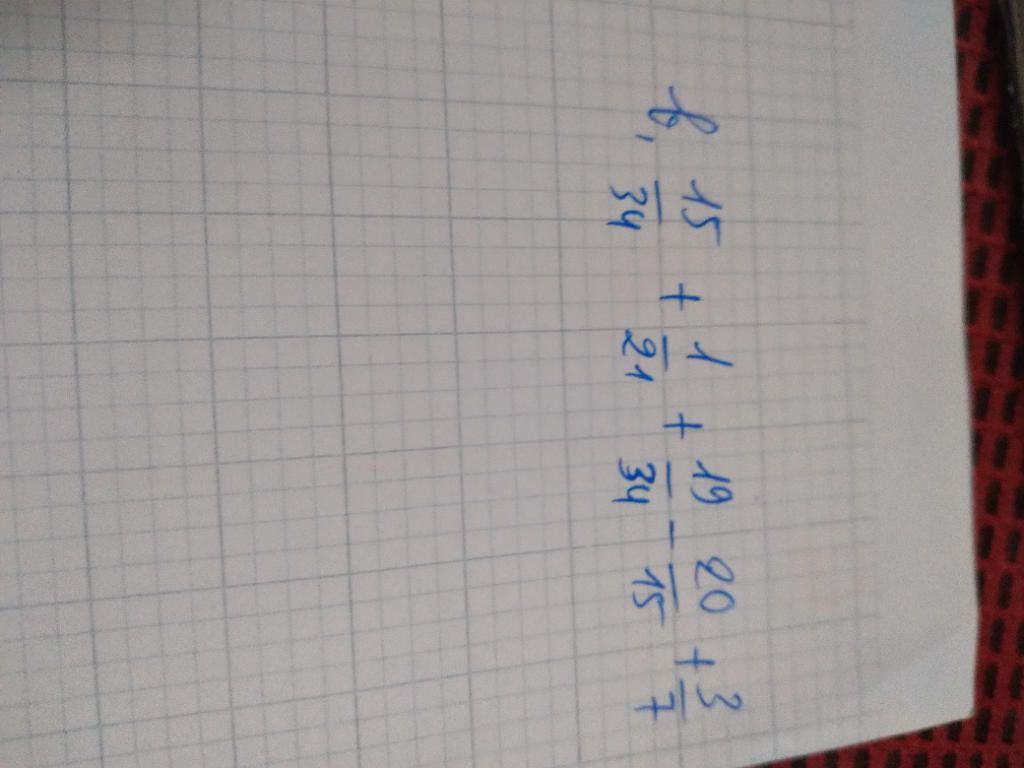 b, 15/34 + 1/21 + 19/34 - 20/15 + 3/7